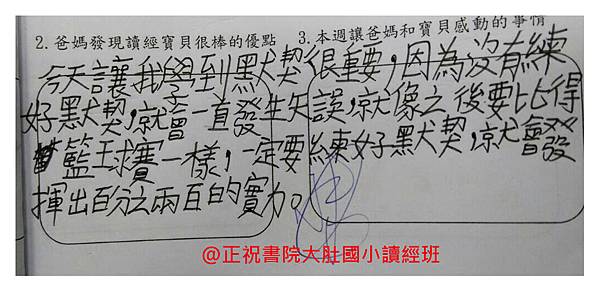 2.爸媽發現讀經寶貝很棒的優點 3.本週讓爸媽和寶貝感動的事情
今天讓我學到默契很重要,因為沒有練
好默契,就會一直發生失誤,就像之後要比得
籃球賽一樣,一定要練好默契,就會發
揮出百分之兩百的實力。
@正祝書院大肚國小讀經班